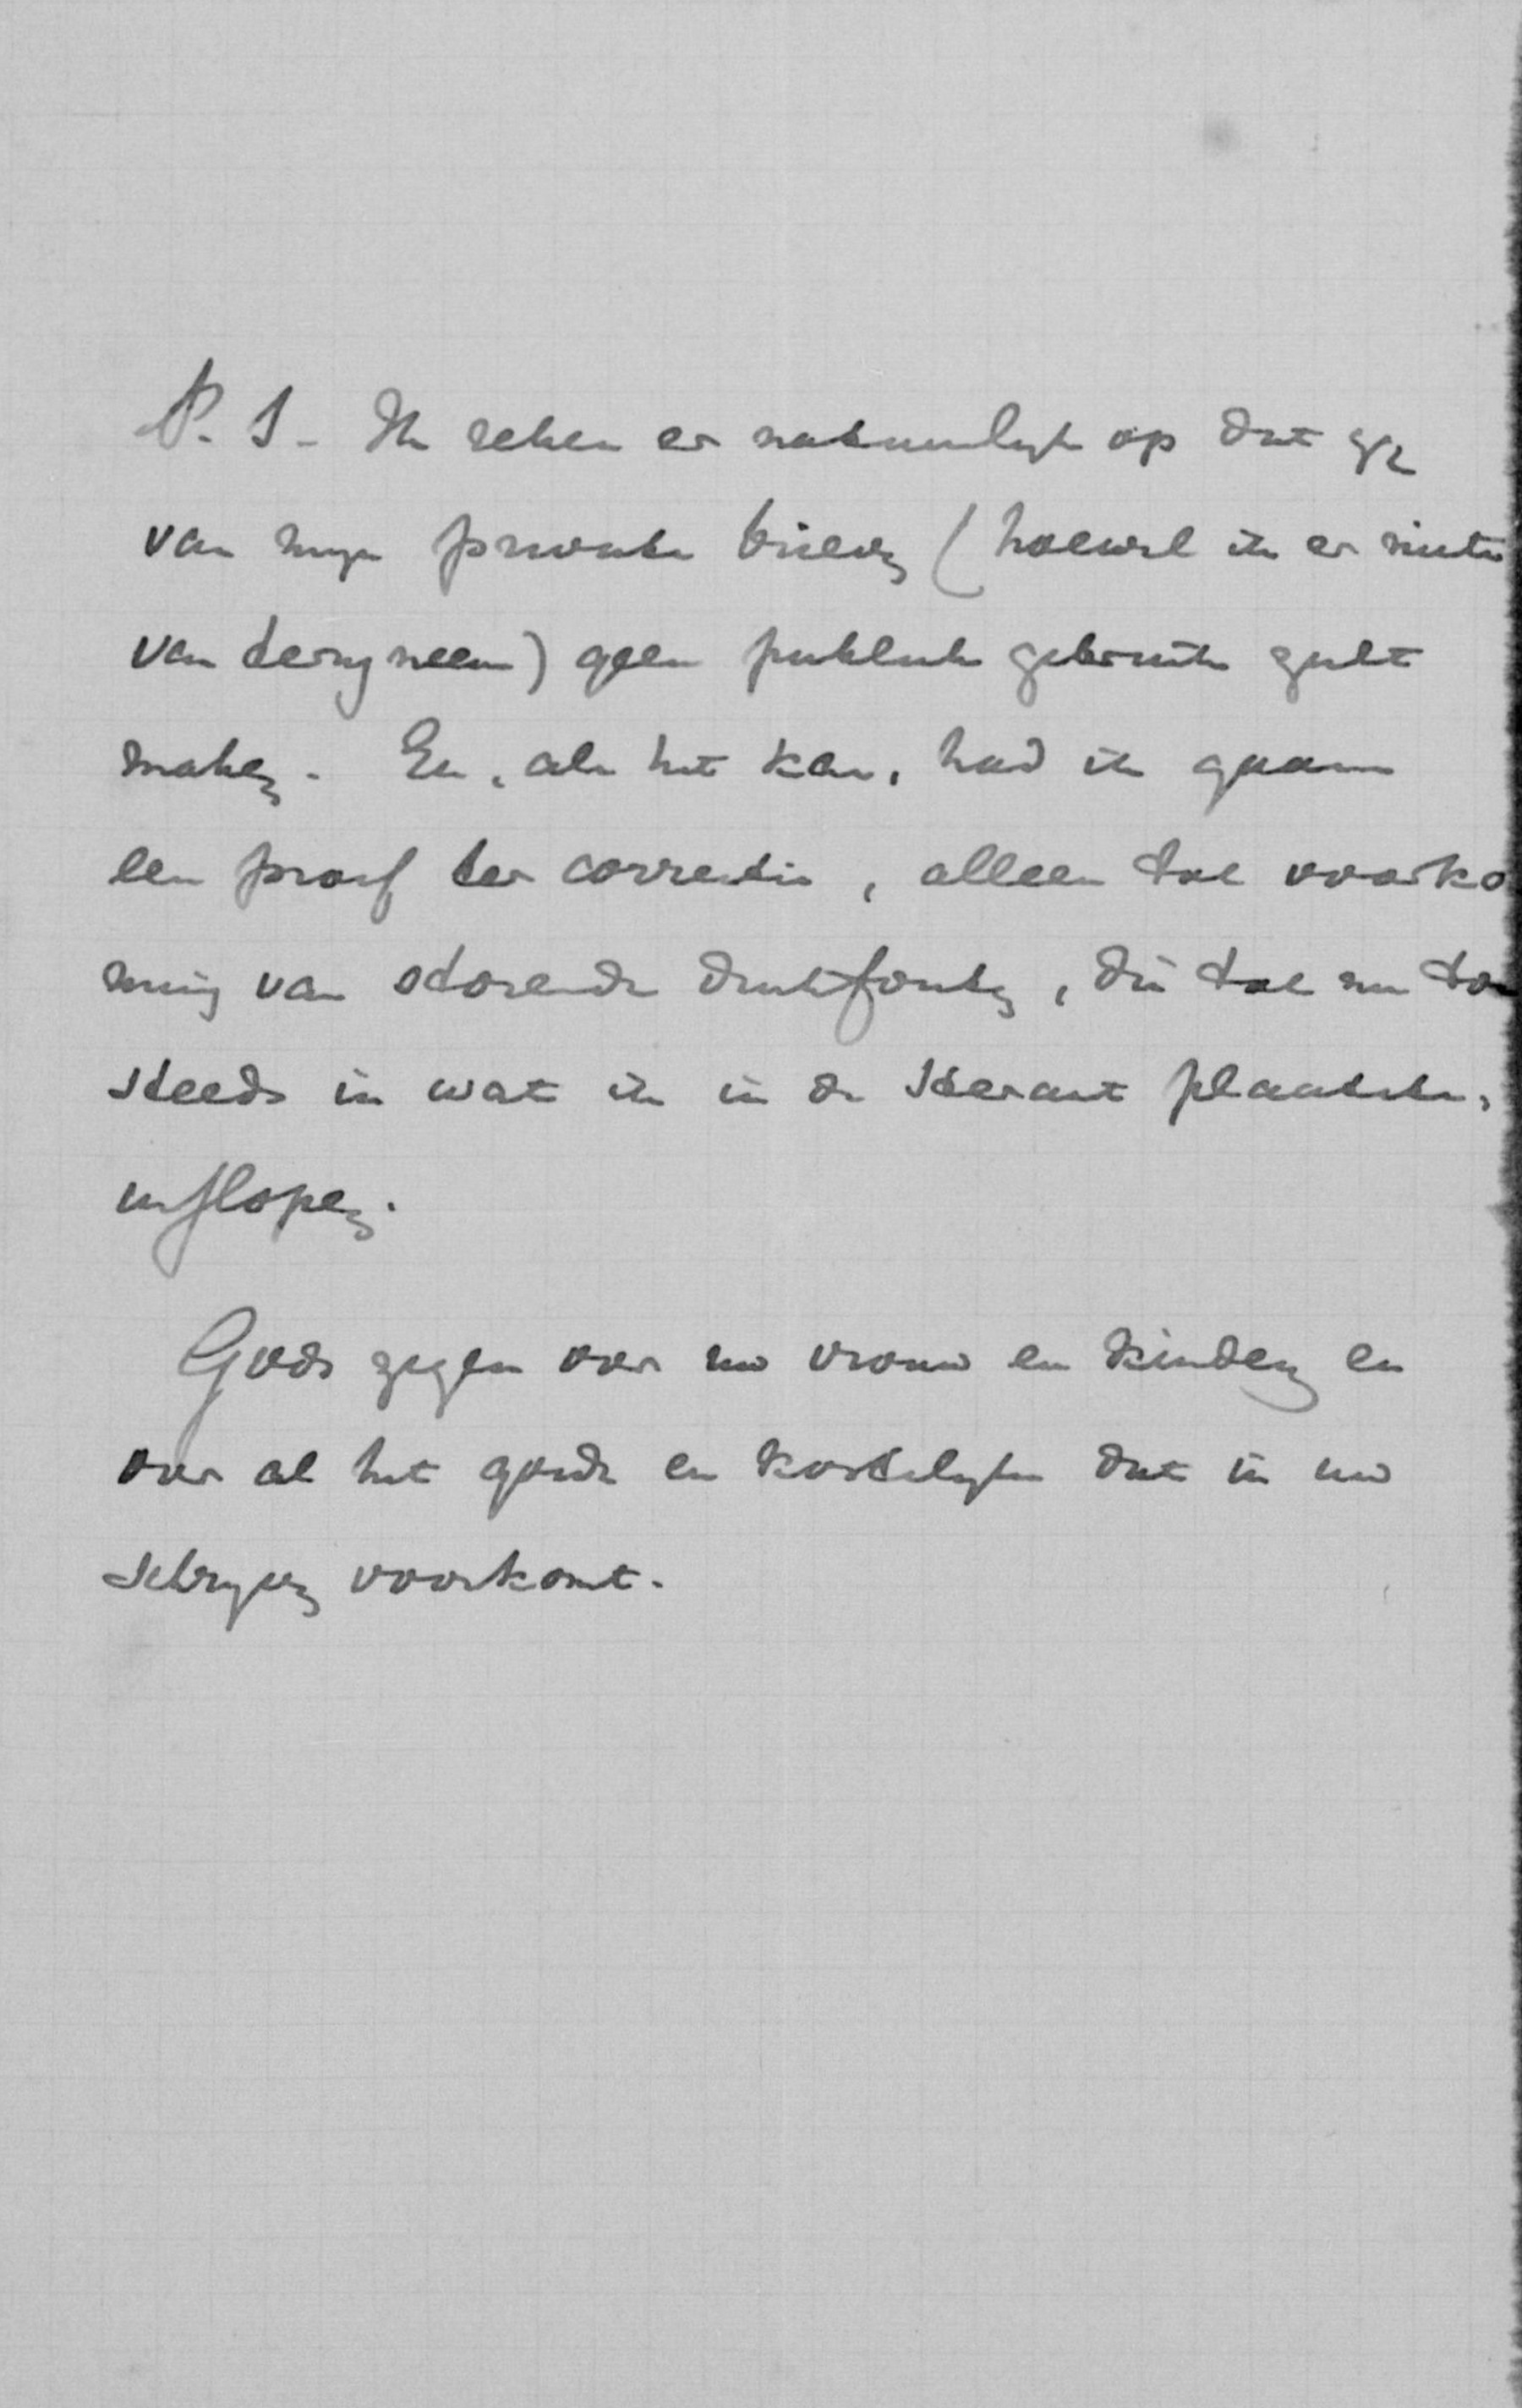 P. S - Ik reken er natuurlyk op dat gy
van myn private brieven (hoewel ik er niets
van terugneem) geen publiek gebruik zult
maken. En, als het kan, had ik gaarn
een proef ter correctie, alleen tot voorko
ming van storende drukfouten, die tot nu toe
steeds in wat ik in de Keraut plaatste,
inslopen.
Gods zegen over uw vrouw en kinderen en
over al het goede en kostelyke dat in uw
schryven voorkomt.